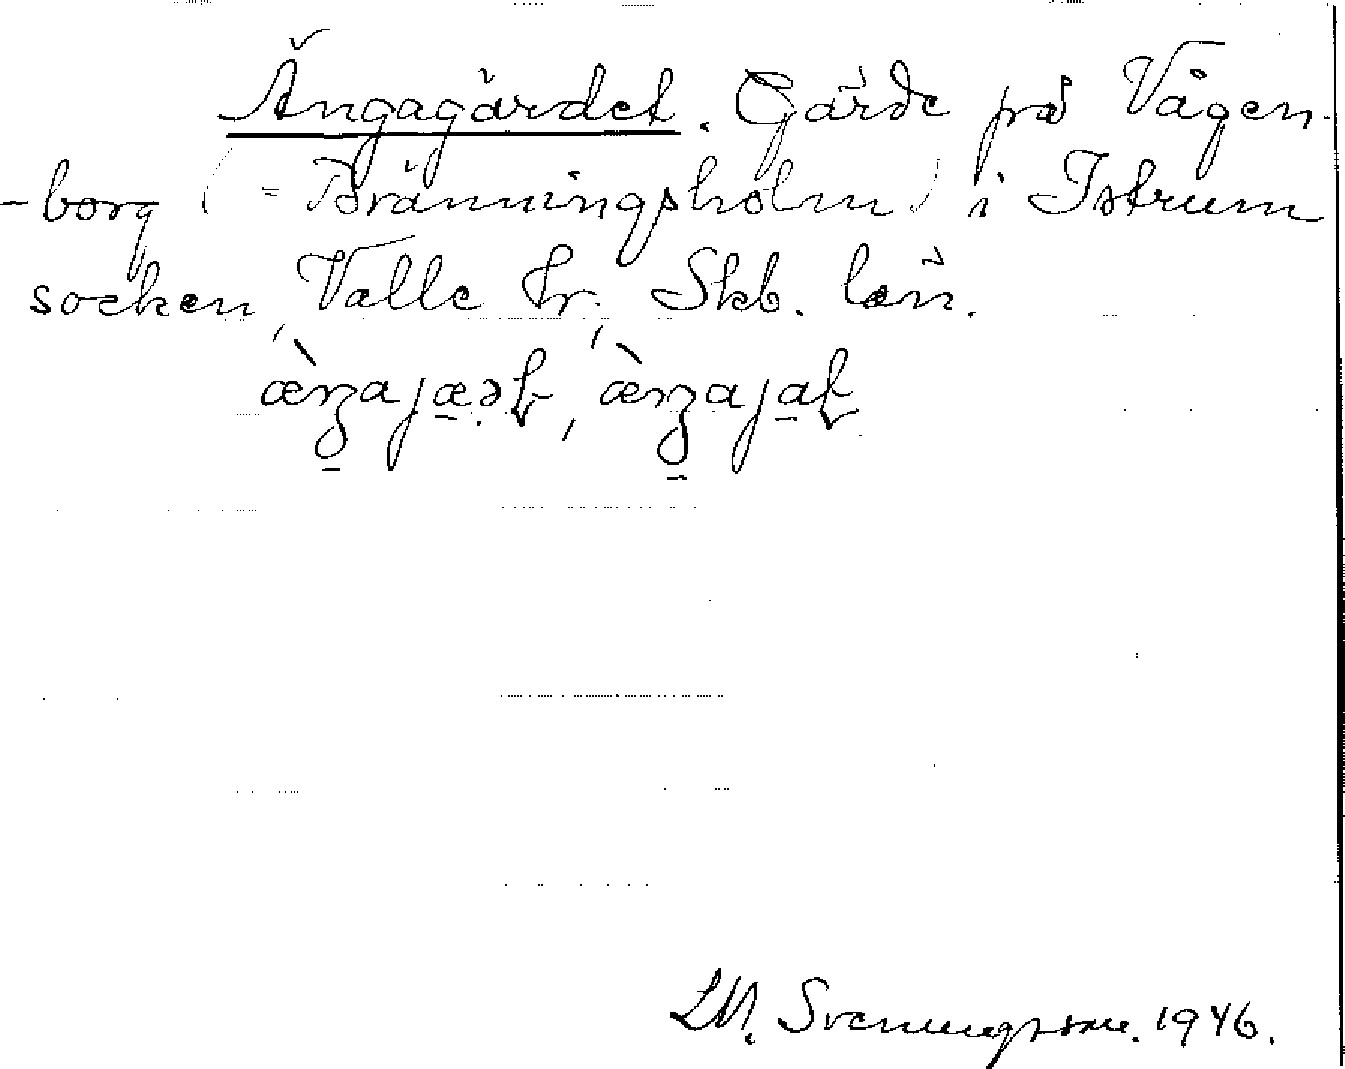 Ängagärdet. Gärde på Vägen-
-borg (= Bränningsholm) i Istrum
socken, Valle hr, Skb. län.
L.M. Svenungsson. 1946.